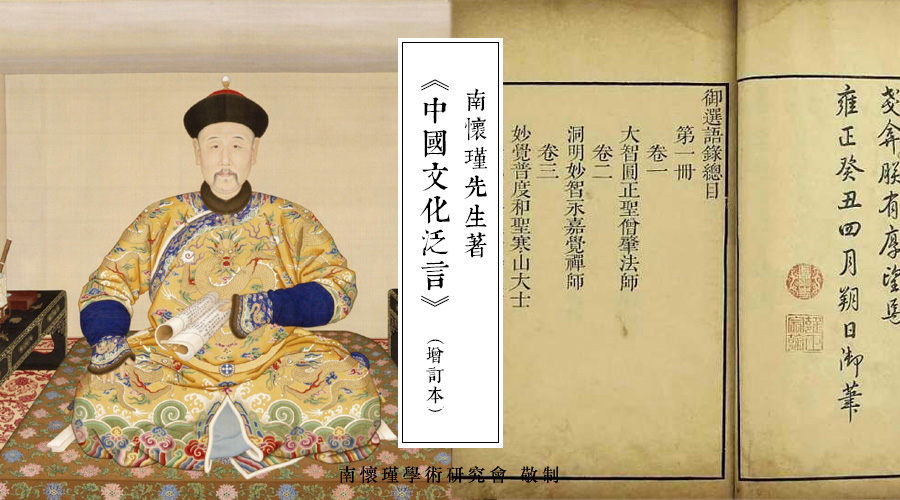 南懷瑾先生著
《中國文化泛言》
（增訂本）
御選語錄總目
第一冊
卷一
大智圓正聖僧肇法師
卷二
洞明妙智永嘉覺禪師
卷三
妙覺普度和聖寒山大士
朕有厚望焉
雍正癸丑四月朔日御筆
南懷瑾學術研究會 敬制